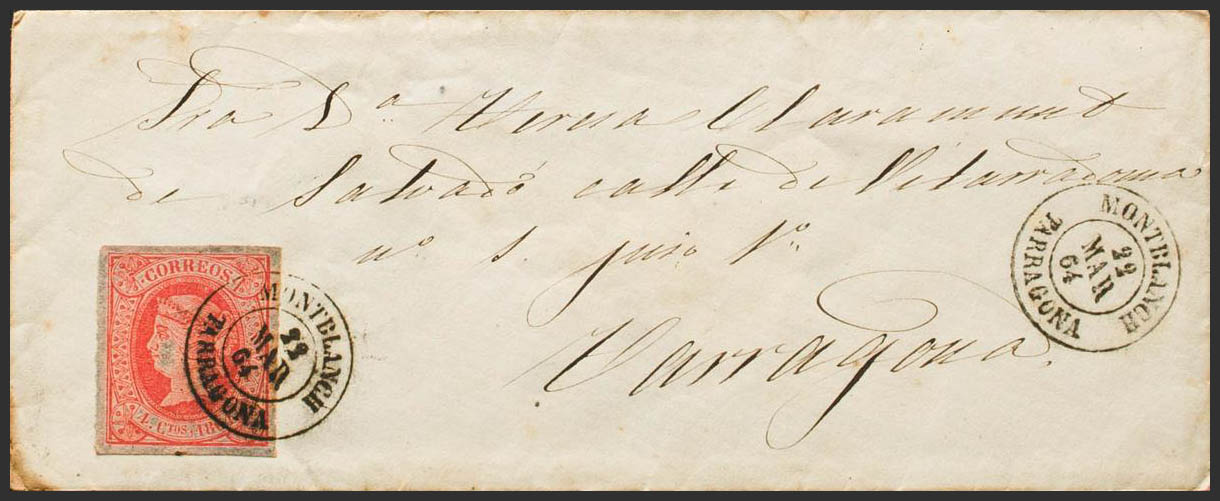 Sra D.ª Teresa Claramunt
de Salvadó calle de Vilarroma
nº 1. piso 1º
Tarragona.
CORREOS
4. CTOS. 18
MONTBLANCH
22
MAR
64
TARRAGONA
MONTBLANCH
22
MAR
64
TARRAGONA